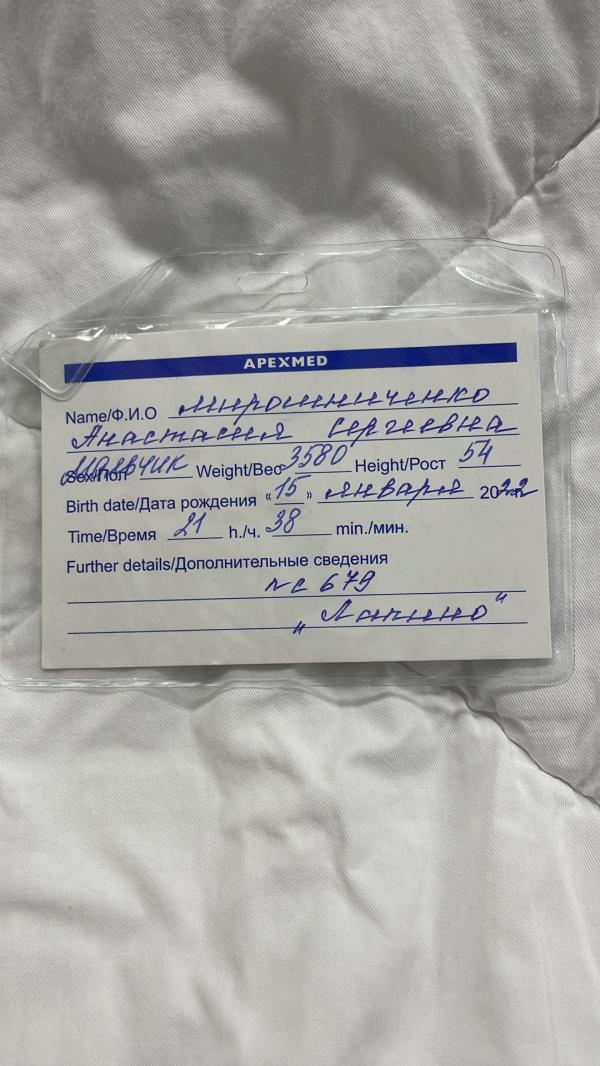 APEXMED
Name/Ф.И.О Мирошниченко
Анастасия Сергеевна
Sex/Пол Мальчик Weight/Вес 3580 Height/Рост 54
Birth date/Дата рождения «15» января 2022
Time/Время 21 h./ч. 38 min./мин.
Further details/Дополнительные сведения
NC 679
„Лапино"